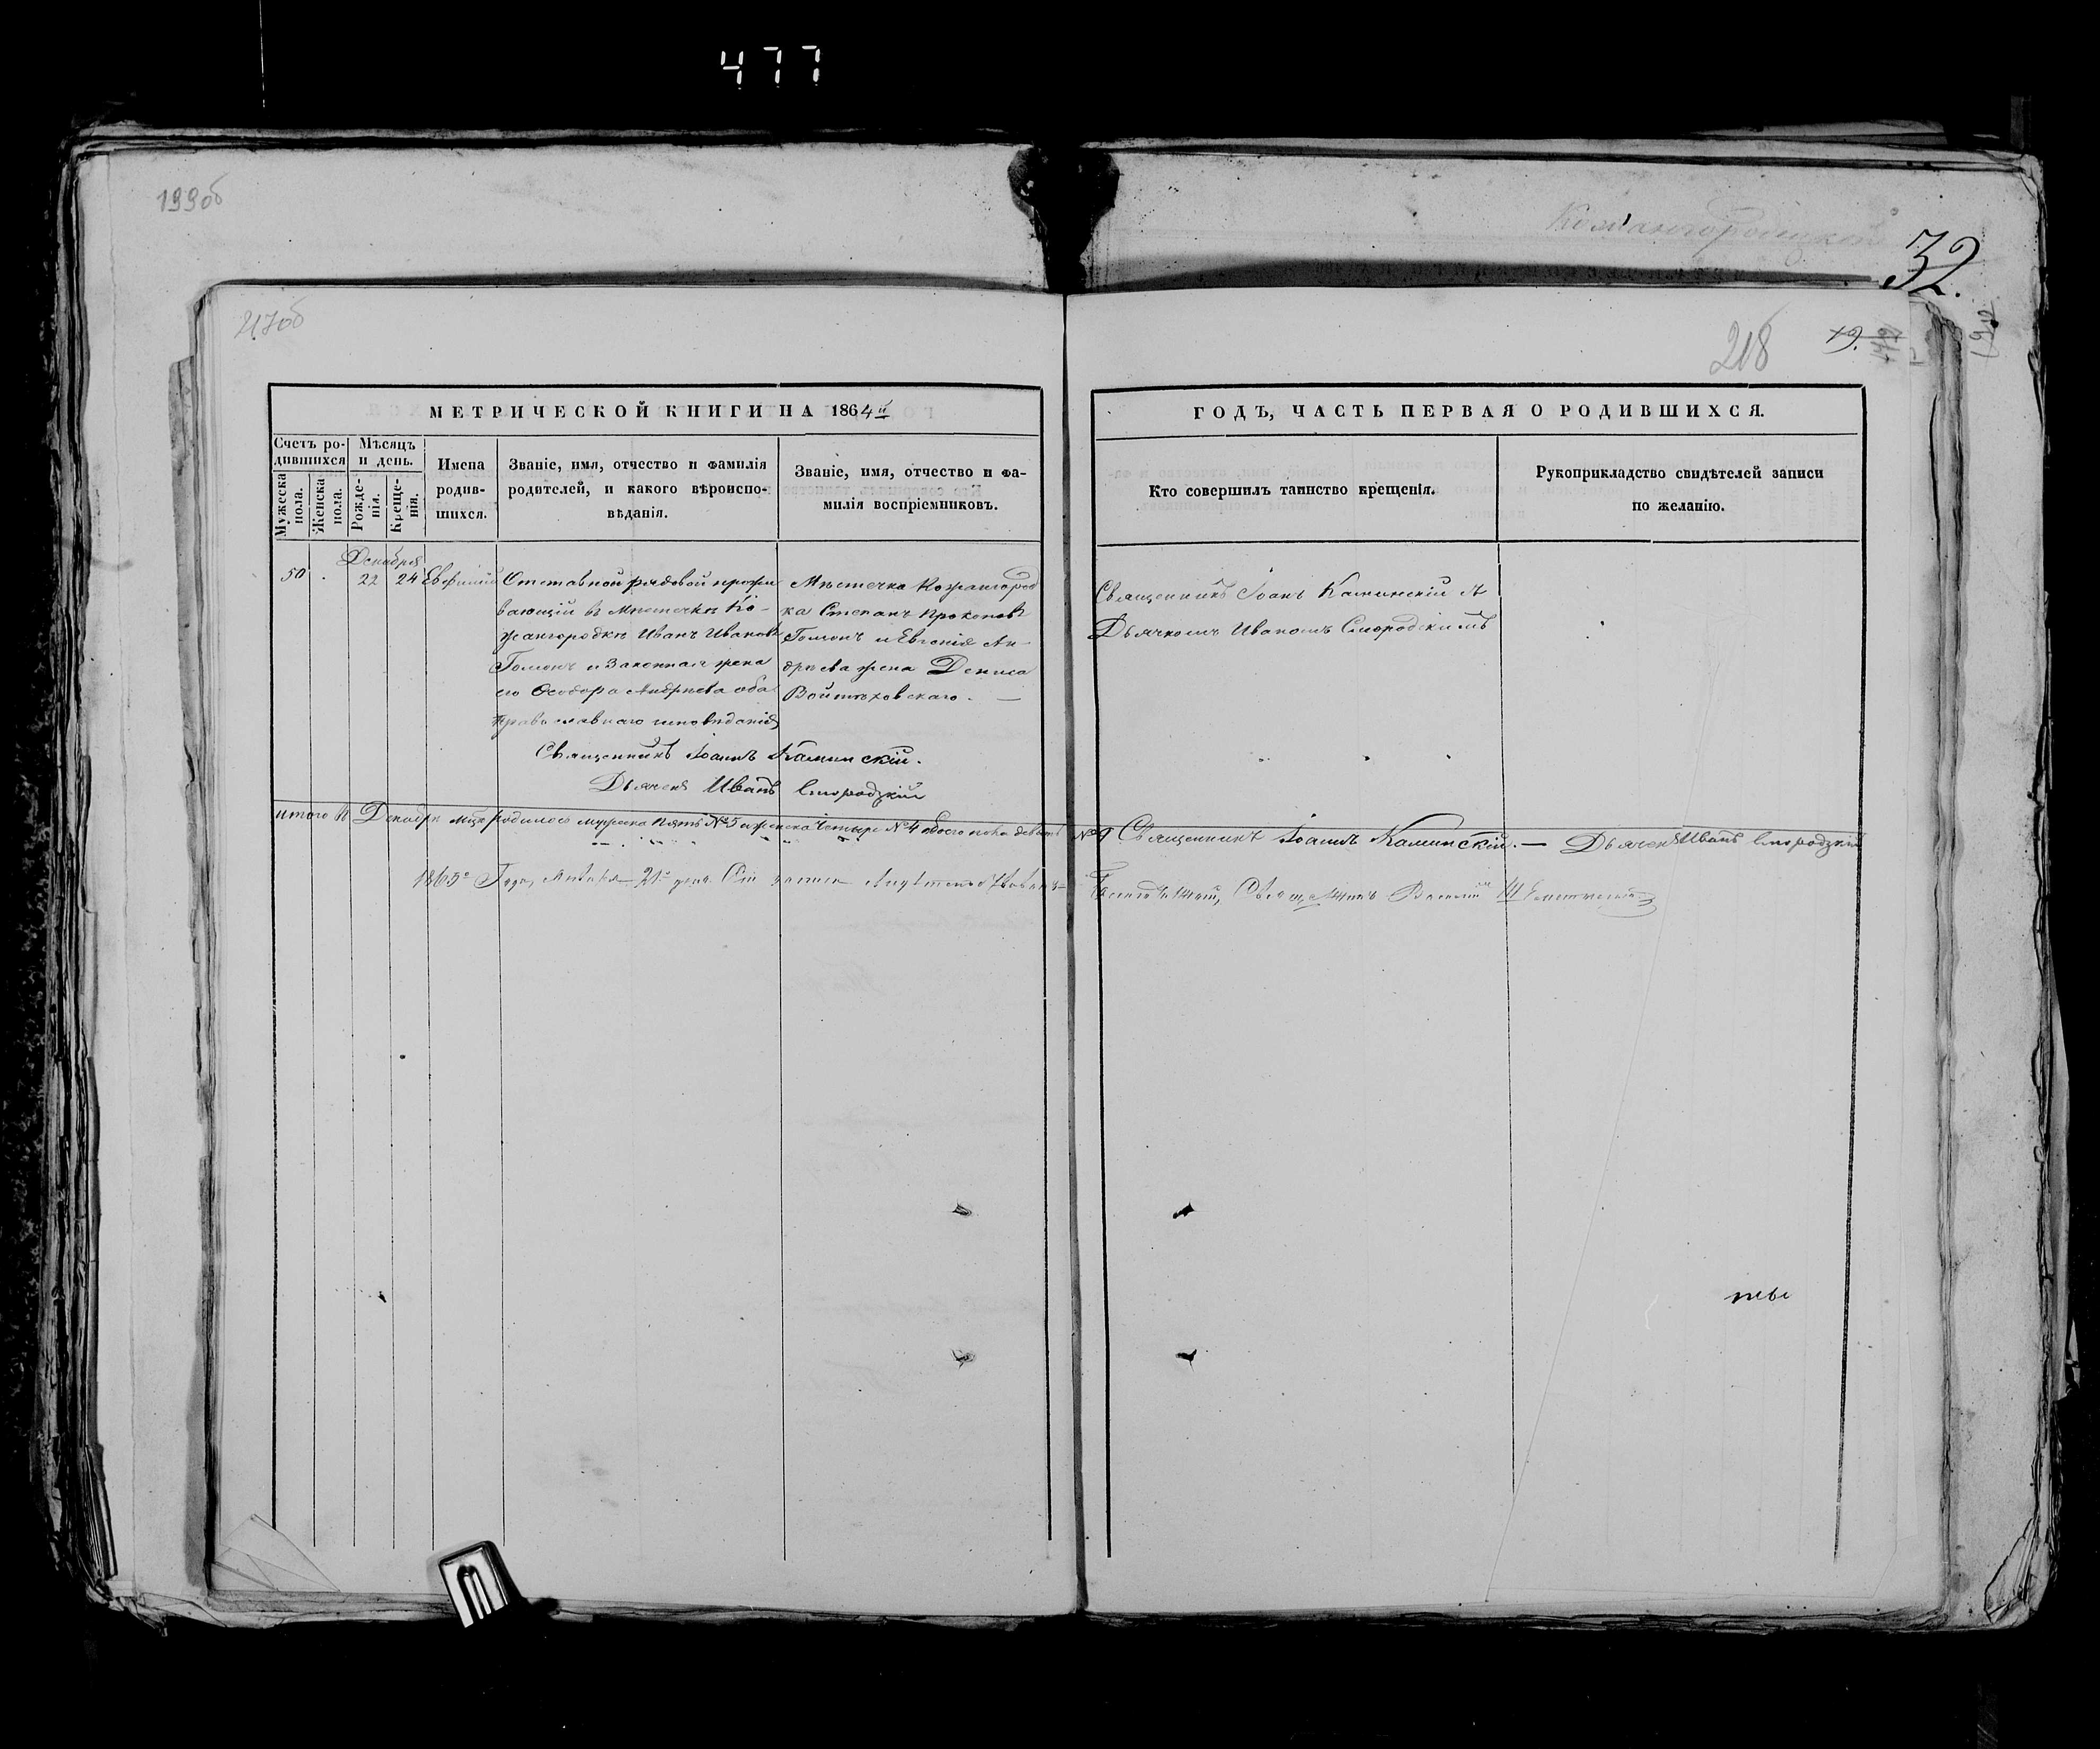 477
199об
Кожангородецкой
32.
217об
218
19.
МЕТРИЧЕСКОЙ КНИГИ НА 1864й
ГОДЪ, ЧАСТЬ ПЕРВАЯ О РОДИВШИХСЯ.
Счетъ ро-
дившихся
Мужеска
пола.
Женска
пола.
Мѣсяцъ
и день.
Рожде-
нія.
Креще-
нія.
Имена
родив-
шихся.
Званіе, имя, отчество и фамилія
родителей, и какого вѣроиспо-
вѣданія.
Званіе, имя, отчество и фа-
милія воспріемниковъ.
Кто совершилъ таинство крещенія.
Рукоприкладство свидѣтелей записи
по желанію.
Декабря
50 . 22 24 Евфимій
Отставной рядовой прожи
вающій въ Мѣстечкѣ Ко-
жангородкѣ Иванъ Ивановъ
Гомонъ и Законная жена
его Ѳеодора Андрѣева оба
православнаго исповѣданія
Мѣстечка Кожангород
ка Степанъ Прокоповъ
Гомонъ и Евгенія Ан
дрѣева жена Дениса
Войтѣховскаго. —
Священникъ Іоанъ Каминскій съ
Дьячкомъ Иваномъ Смородскимъ
Священникъ Іоаннъ Каминскій.
Дьячекъ Иванъ Смородзкій
итого въ Декабрѣ мцѣ родилось мужеска пять №5 и женска четыре №4 обоего пола девять №9 Священникъ Іоаннъ Каминскій. — Дьячекъ Иванъ Смородзкій
1865го Года, Января 21го дня. Сіи записи Свящѣнникъ Василій
ты